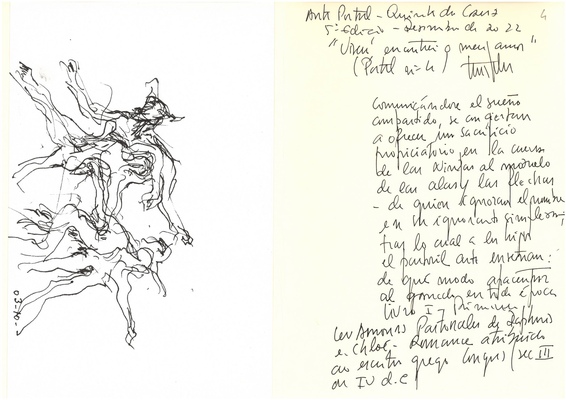 4
Ante Portal - Quinta da Cruz
5ª Edição - dezembro de 2022
"Vivi encontrei o meu amor"
(Portal
comunicándose el sueño
compartido, se
a ofrecer un sacrificio
propiciatorio en la cueva
de las Ninfas al mozuelo
de las alas y las flechas
- de quien ignoran el nombre
en su ignorante simpleza,
tras lo cual a la hija
el pastoril arte enseñan:
de qué modo apacentar
al ganado en toda época
Livro I, primavera
Les Amours Pastorales de Daphnis
e Chloé - Romance atribuído
ao escritor grego Longus (sec III
ou IV d.C)
03-10-2